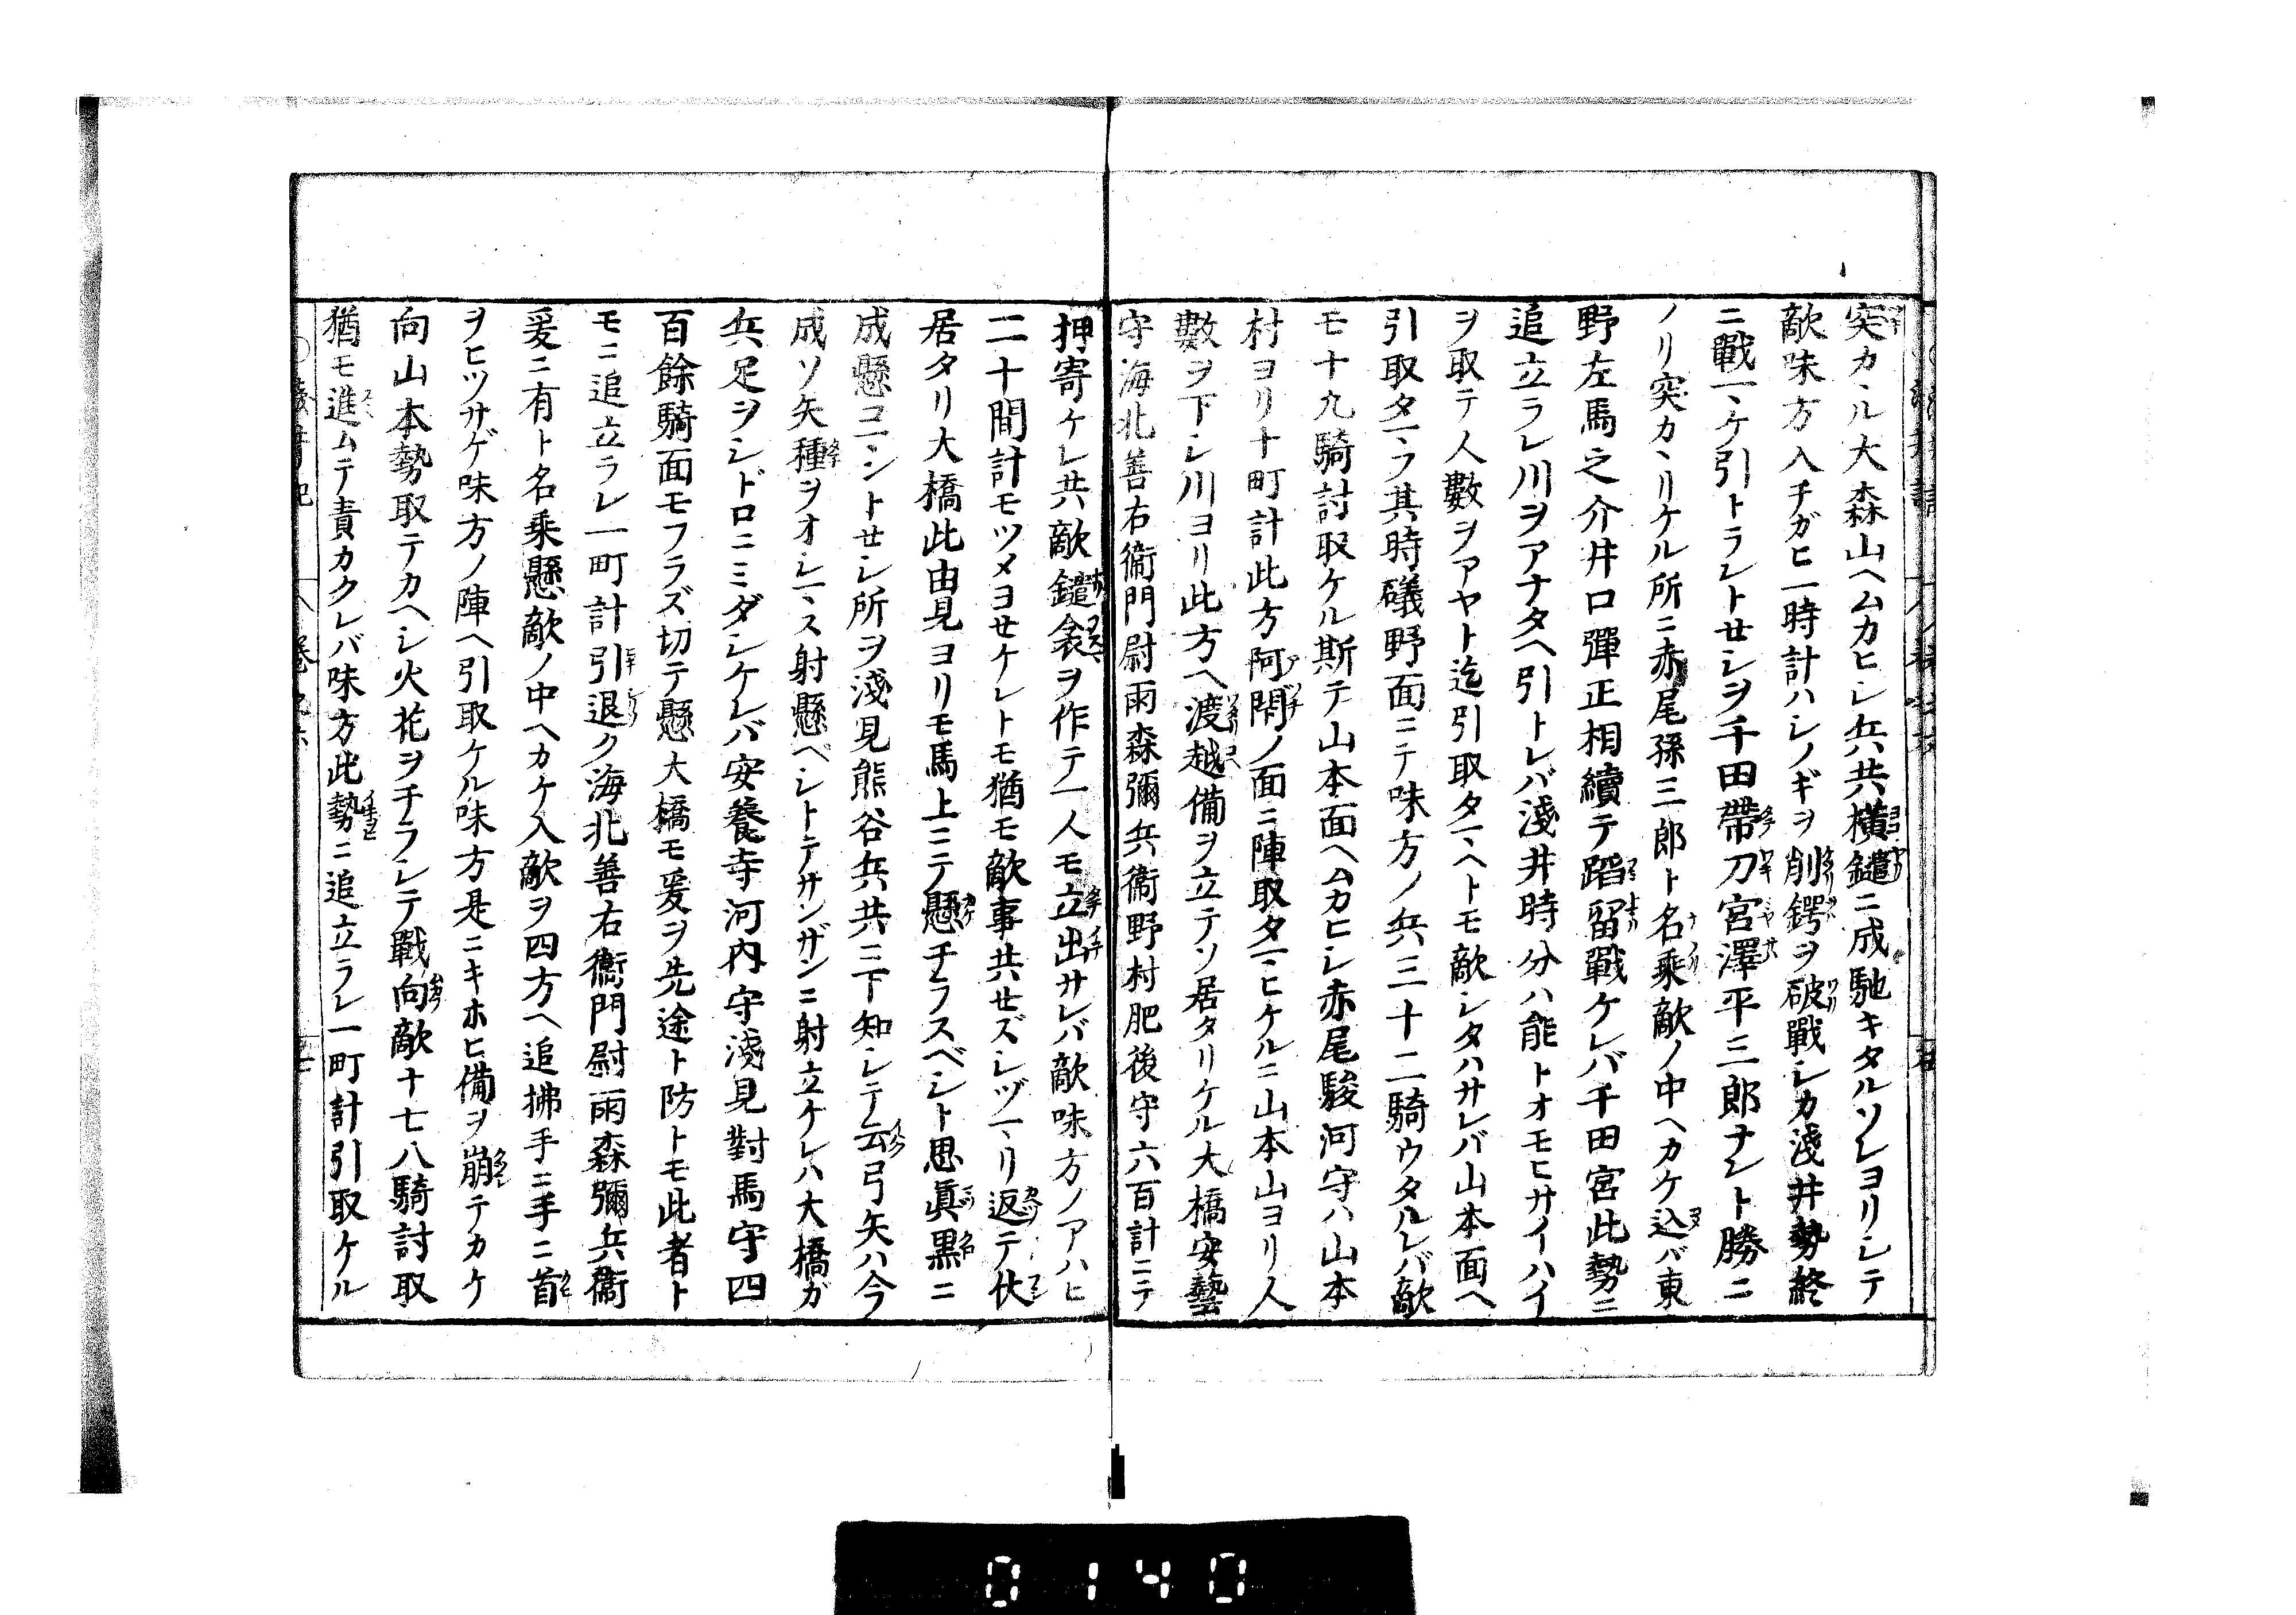 突カヽル大森山ヘムカヒシ兵共横鑓ニ成馳キタルソレヨリシテ
敵味方入チガヒ一時計ハシノギヲ削鍔ヲ破戰シカ淺井勢終
ニ戰マケ引トラントセシヲ千田帶刀宮澤平三郎ナント勝ニ
ノリ突カヽリケル所ニ赤尾孫三郎ト名乘敵ノ中ヘカケ込バ東
野左馬之介井口彈正相續テ蹈留戰ケレバ千田宮此勢ニ
追立ラレ川ヲアナタヘ引トレバ淺井時分ハ能トオモヒサイハイ
ヲ取テ人數ヲアヤト迄引取タマヘトモ敵シタハサレバ山本面ヘ
引取タマフ其時礒野面ニテ味方ノ兵三十二騎ウタルレバ敵
モ十九騎討取ケル斯テ山本面ヘムカヒシ赤尾駿河守ハ山本
村ヨリ十町計此方阿閉ノ面ニ陣取タマヒケルニ山本山ヨリ人
數ヲ下シ川ヨリ此方ヘ渡越備ヲ立テソ居タリケル大橋安藝
守海北善右衞門尉雨森彌兵衞野村肥後守六百計ニテ
押寄ケレ共敵鑓衾ヲ作テ一人モ立出サレバ敵味方ノアハヒ
二十間計モツメヨセケレトモ猶モ敵事共セズシヅマリ返テ伏
居タリ大橋此由見ヨリモ馬上ニテ懸チラスベシト思眞黒ニ
成懸コマントセシ所ヲ淺見熊谷兵共ニ下知シテ云弓矢ハ今
成ソ矢種ヲオシマス射懸ベシトテサンザンニ射立ケレハ大橋ガ
兵足ヲシドロニミダシケレバ安養寺河内守淺見對馬守四
百餘騎面モフラズ切テ懸大橋モ爰ヲ先途ト防トモ此者ト
モニ追立ラレ一町計引退ク海北善右衞門尉雨森彌兵衞
爰ニ有ト名乘懸敵ノ中ヘカケ入敵ヲ四方ヘ追拂手ニ手ニ首
ヲヒツサゲ味方ノ陣ヘ引取ケル味方是ニキホヒ備ヲ崩テカケ
向山本勢取テカヘシ火花ヲチラシテ戰向敵十七八騎討取
猶モ進ムテ責カクレバ味方此勢ニ追立ラレ一町計引取ケル
0140